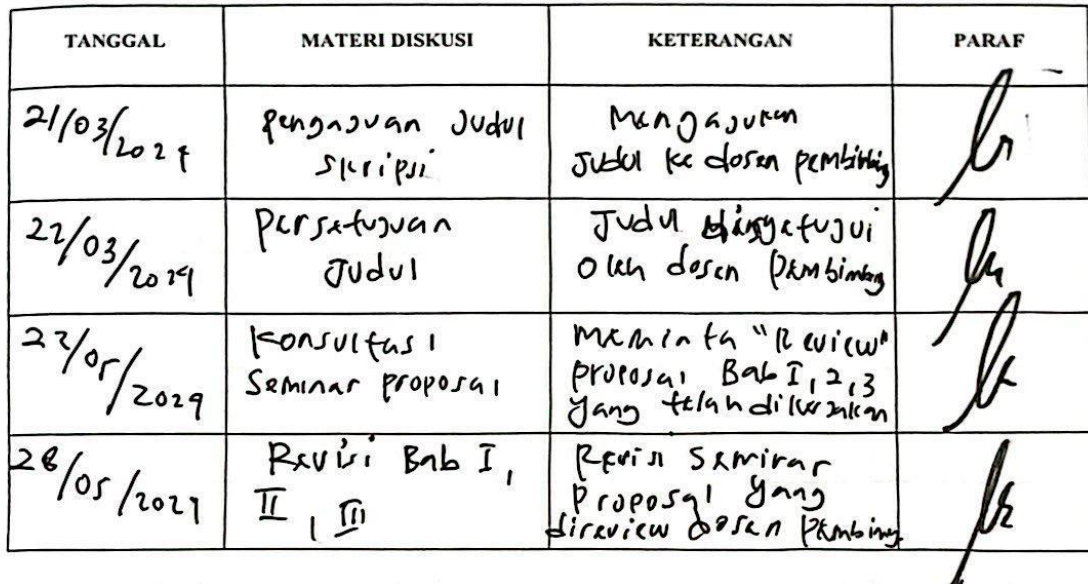 TANGGAL MATERI DISKUSI KETERANGAN PARAF
21/03/2024 Pengajuan Judul Mengajukan
Skripsi Judul ke dosen pembimbing
22/03/2024 Persetujuan Judul Menyetujui
Judul Oleh dosen Pembimbing
27/05/2024 Konsultasi Meminta "Review"
Seminar proposal proposal Bab I, 2, 3
yang telah dikerjakan
28/05/2024 Revisi Bab I, Revisi Seminar
II, III Proposal yang
direview dosen Pembimg